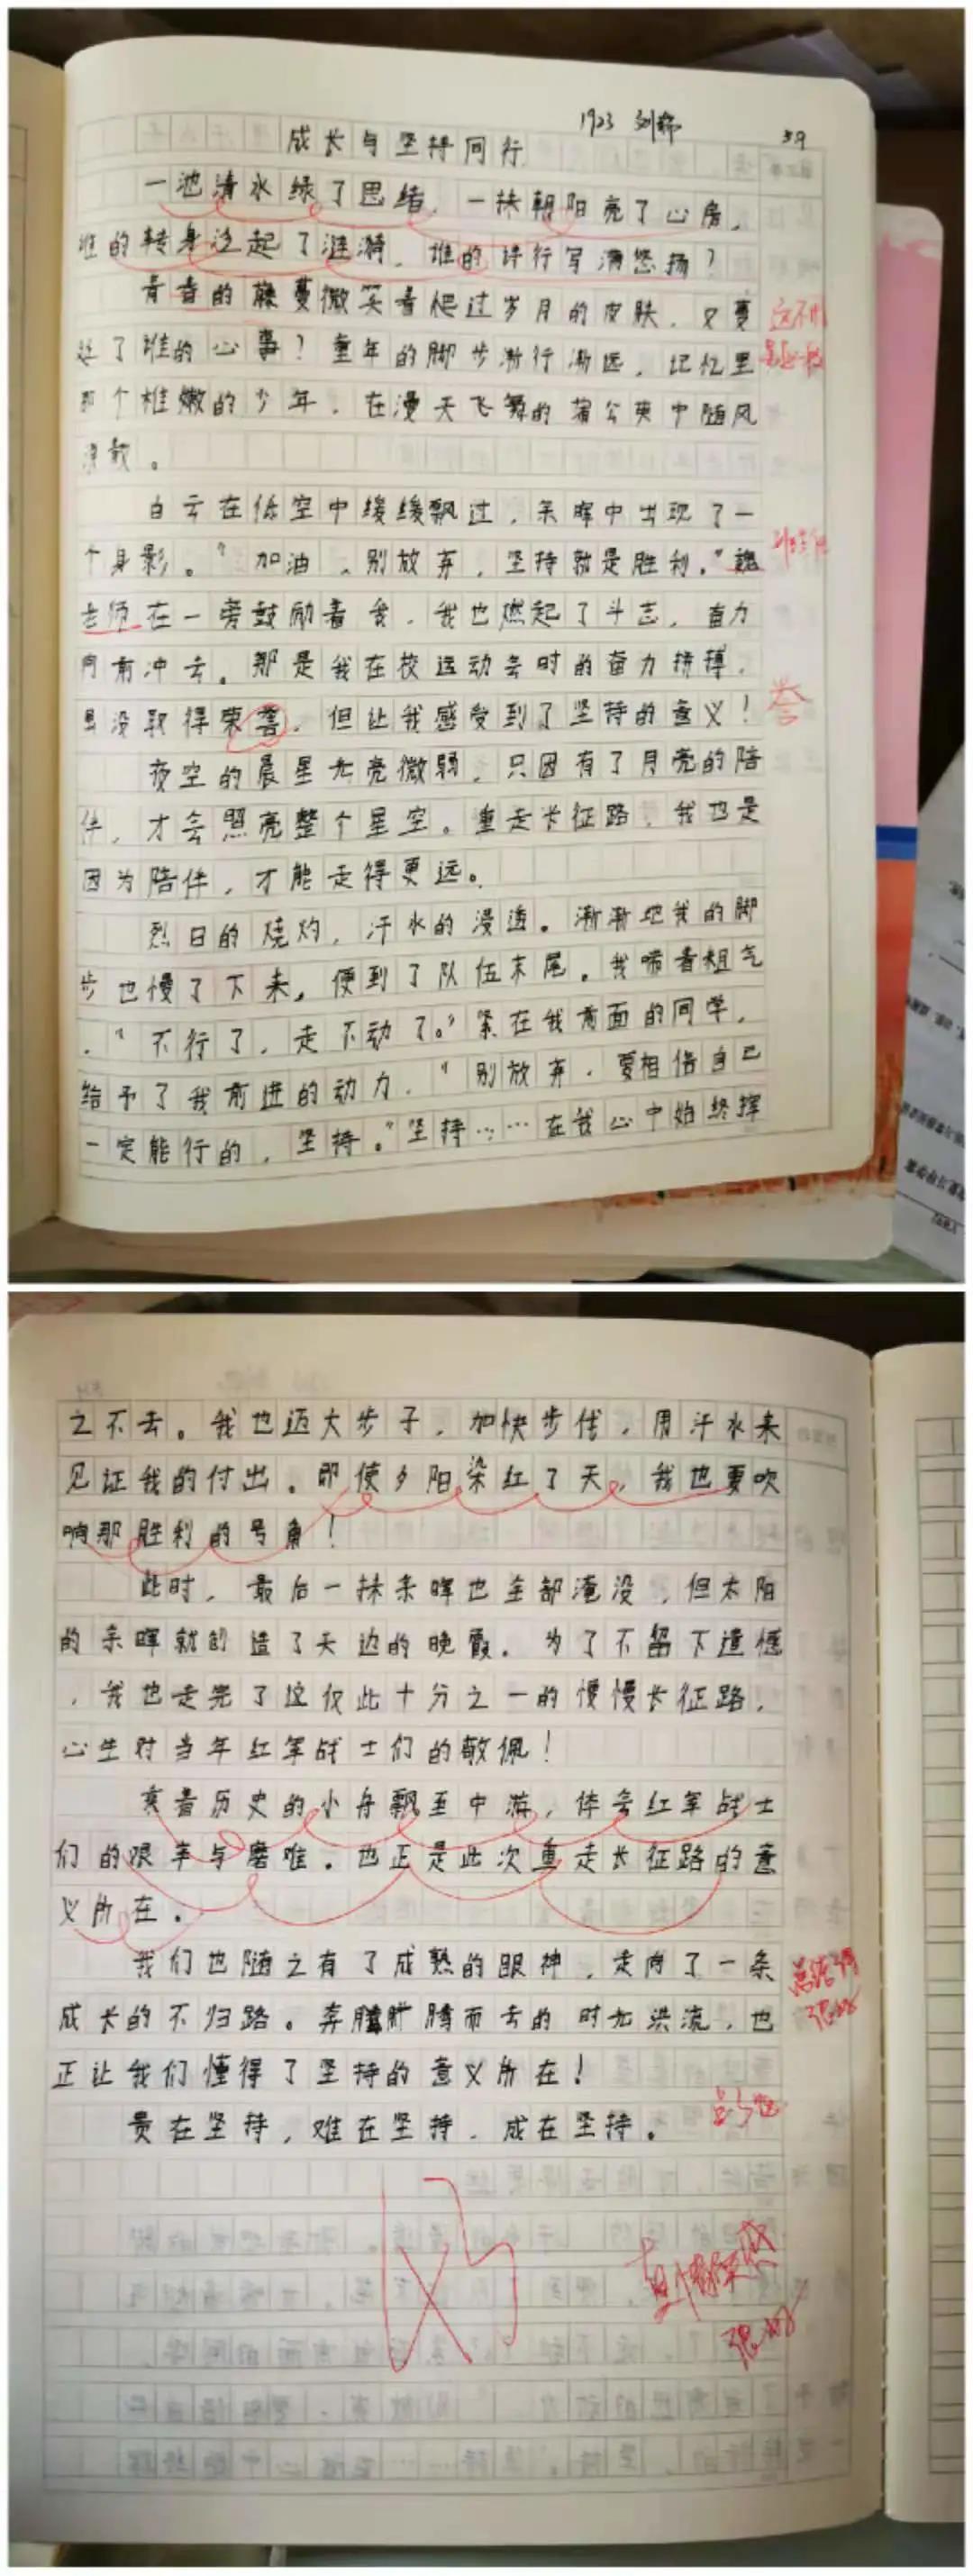 1923 刘
59
成长与坚持同行
一池清水绿了思绪，一抹朝阳亮了心房，
谁的转身泛起了涟漪，谁的诗行写满悠扬？
青春的藤蔓微笑着爬过岁月的皮肤，又蔓
延了谁的心事？童年的脚步渐行渐远，记忆里
那个稚嫩的少年，在漫天飞舞的蒲公英中随风
飘散。
白云在低空中缓缓飘过，余晖中出现了一
个身影。"加油，别放弃，坚持就是胜利。"魏
老师在一旁鼓励着我，我也燃起了斗志，奋力
向前冲去。那是我在校运动会时的奋力拼搏，
虽没取得荣誉，但让我感受到了坚持的意义！
誉
夜空的晨星光亮微弱，只因有了月亮的陪
伴，才会照亮整个星空。重走长征路，我也是
因为陪伴，才能走得更远。
烈日的烧灼，汗水的浸透。渐渐地我的脚
步也慢了下来，便到了队伍末尾。我喘着粗气
，"不行了，走不动了。"紧在我前面的同学，
给予了我前进的动力，"别放弃，要相信自己
一定能行的，坚持。"坚持……在我心中始终挥
之不去。我也迈大步子，加快步伐，用汗水来
见证我的付出。即使夕阳染红了天，我也要吹
响那胜利的号角！
此时，最后一抹余晖也全部淹没，但太阳
的余晖就创造了天边的晚霞。为了不留下遗憾
，我也走完了这仅此十分之一的慢慢长征路，
心生对当年红军战士们的敬佩！
乘着历史的小舟飘至中游，体会红军战士
们的艰辛与磨难。也正是此次重走长征路的意
义所在。
我们也随之有了成熟的眼神，走向了一条
成长的不归路。奔腾腾而去的时光洪流，也
正让我们懂得了坚持的意义所在！
贵在坚持，难在坚持，成在坚持。
好
很好